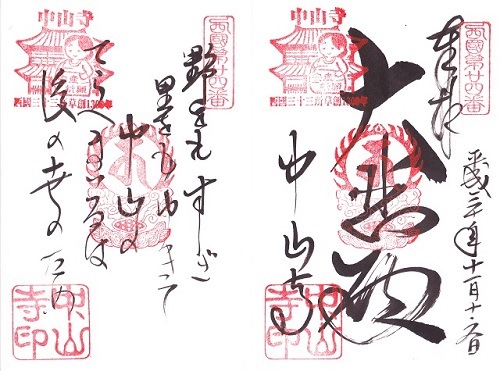 西國第廿四番
奉拝
平成三十年十一月
大悲殿
中山寺
中山寺
西國三十三所草創1300年
中山
寺印
西國第廿四番
野をもすぎ
里をもゆきて
中山の
てらへまいるは
後の世のため
中山寺
西國三十三所草創1300年
中山
寺印